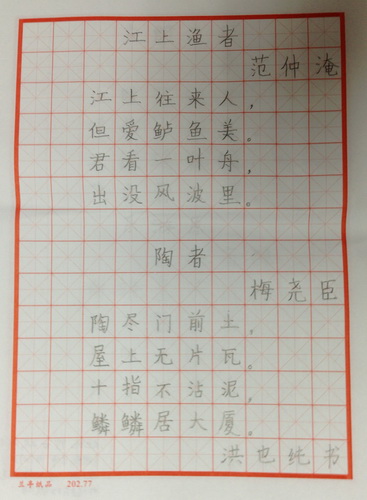 江上渔者
范仲淹
江上往来人，
但爱鲈鱼美。
君看一叶舟，
出没风波里。
陶者
梅尧臣
陶尽门前土，
屋上无片瓦。
十指不沾泥，
鳞鳞居大厦。
洪也纯书
202.77